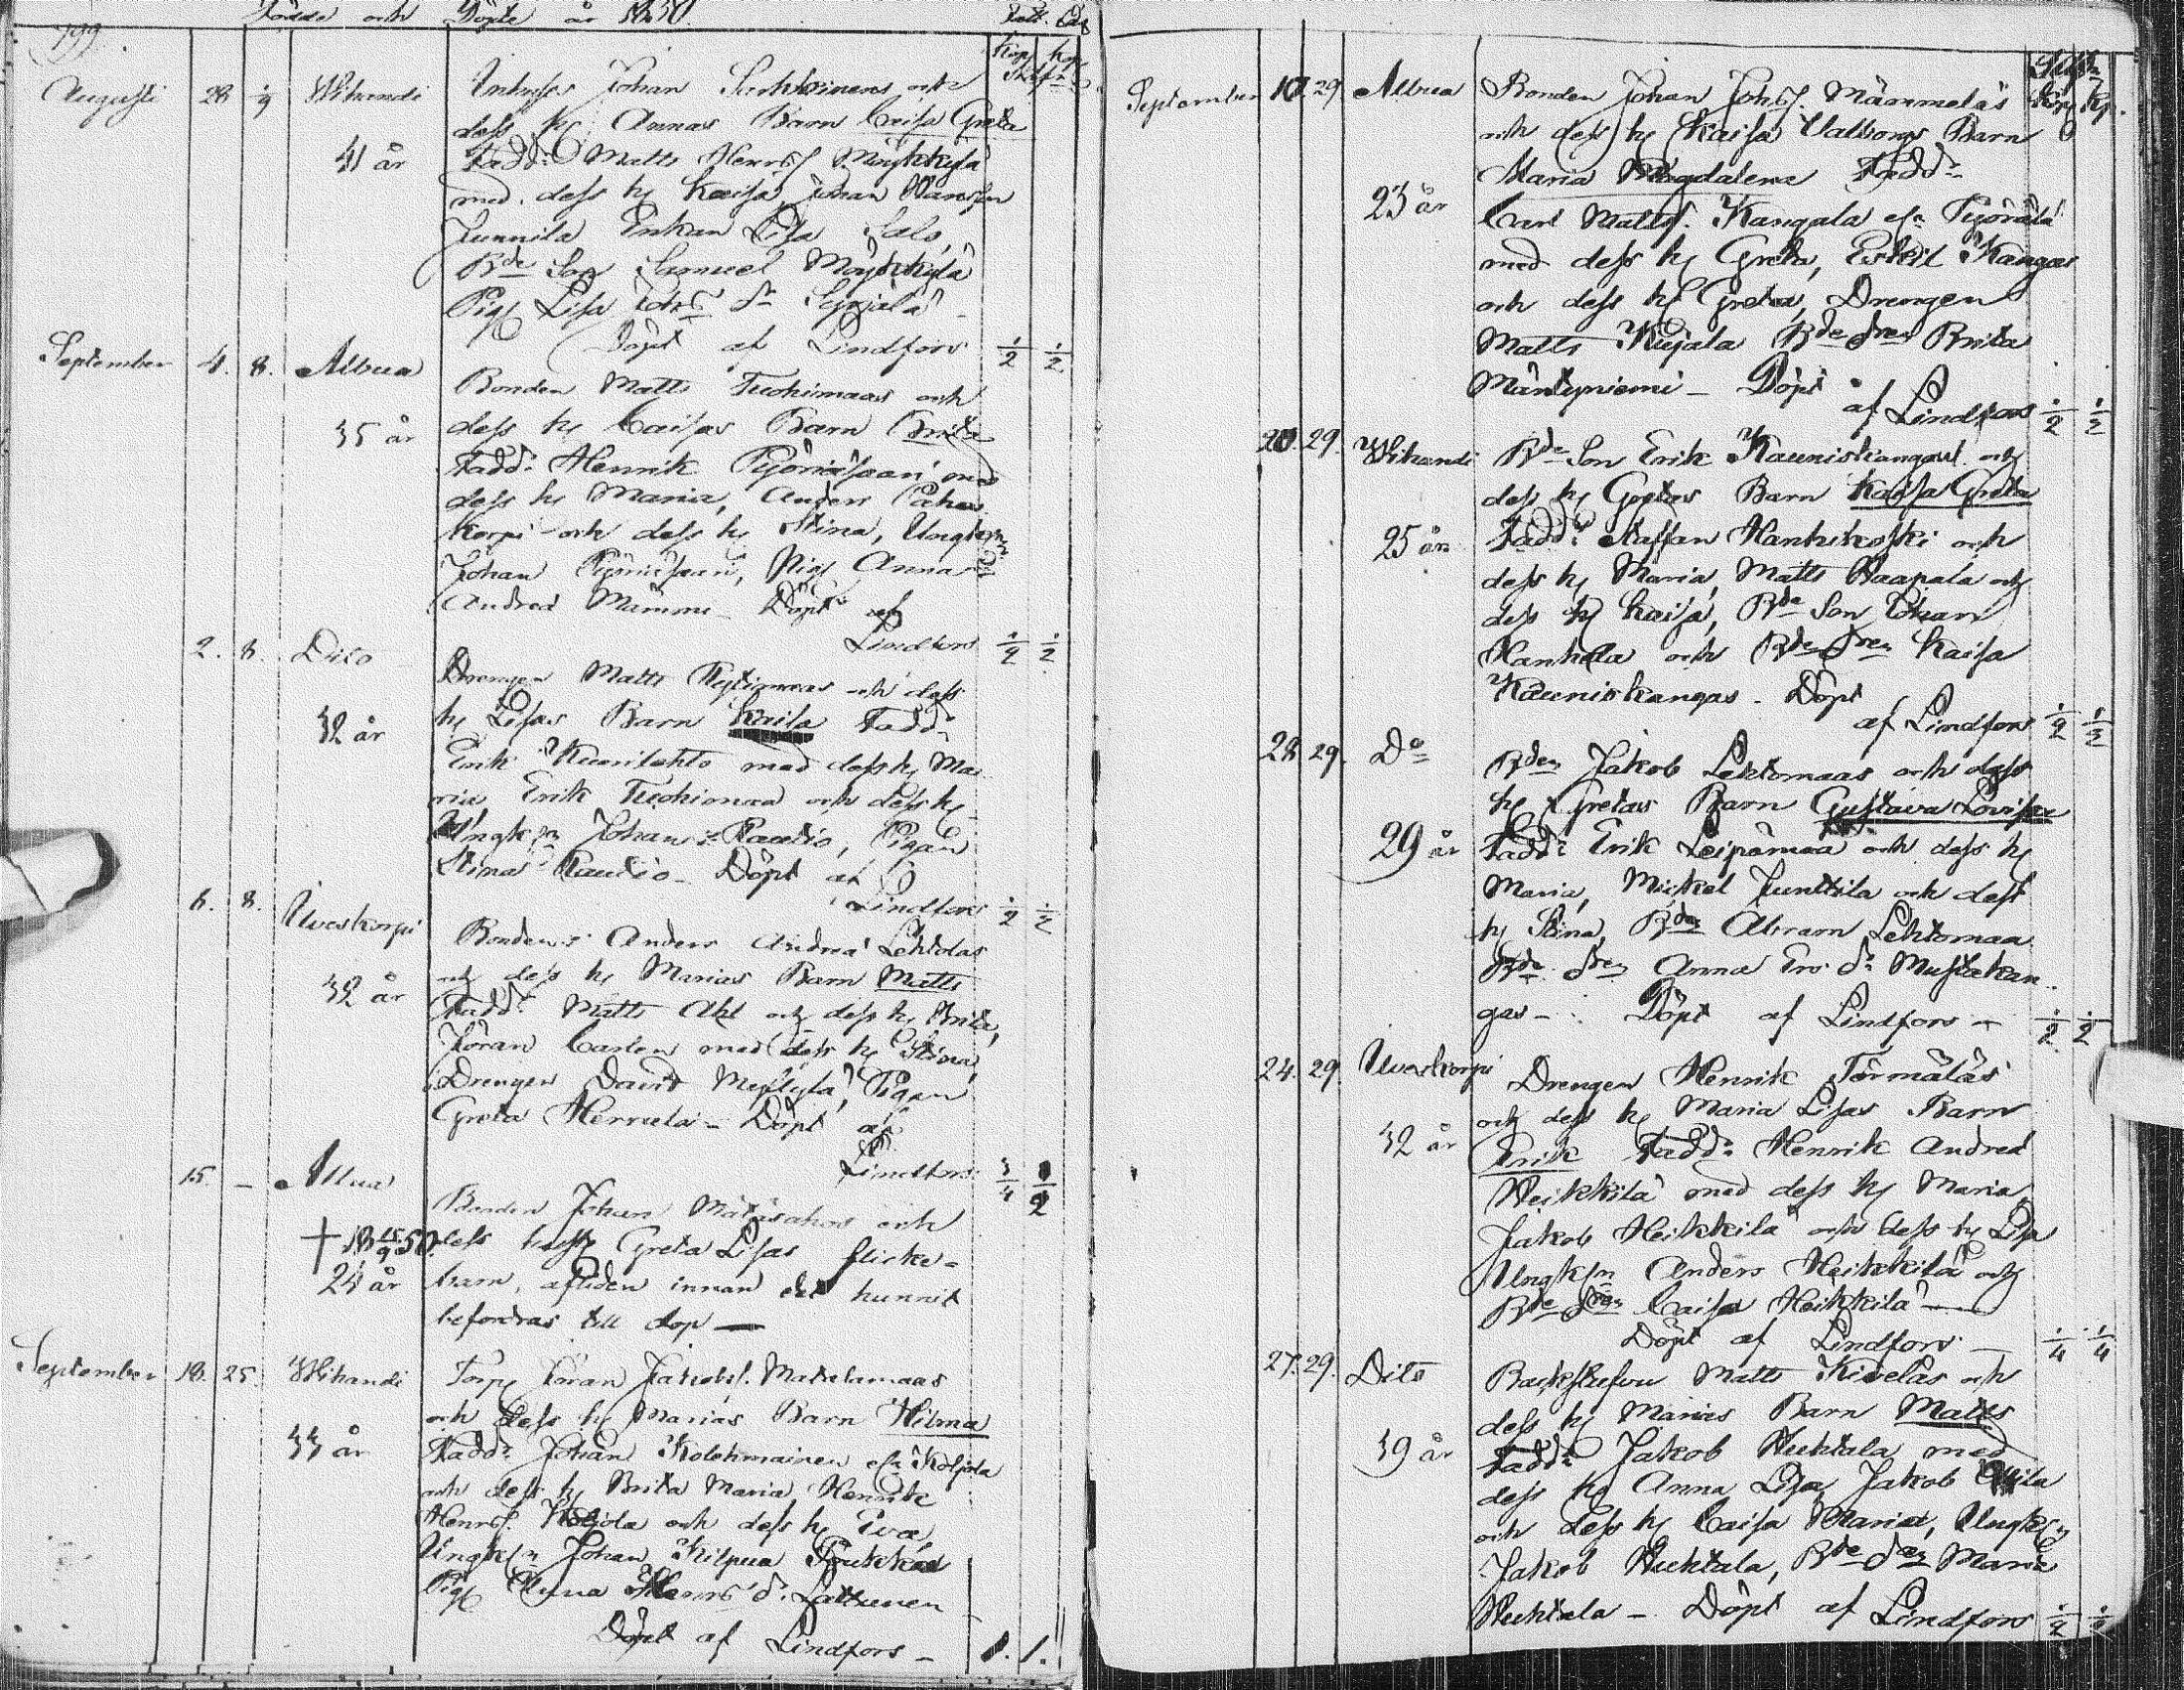 Födde och Döpte år 1850.
199
Augusti 28 1/9 Wihandi Inhyses Johan Sarkkinens och
dess h. Annas Barn Caisa Greta
41 år Fadd: Matts Henrs. Möykkylä
med dess h. Kaisa, Johan Hansson
Junnila Enkan Lisa Salo,
Bde Son Samuel Möykkylä
Pig. Lisa Johs dr Syrjälä
Döpt af Lindfors 1/2 1/2
September 4. 8. Albua
Bonden Matts Tuohimaas och
35 år dess h. Caisas Barn Brita
Fadd: Henrik Pyöriäsaari med
dess h. Maria, Anders Pahas
korpi och dess h. Stina, Ungk.
Johan Pyöriäsaari, Pig. Anna
Andred Mämmi Döpt af
Lindfors 1/2 1/2
2. 8. Dito
Drengen Matts Kytömaas och dess
32 år h. Lisas Barn Kaisa Fadd:
Erik Kuonilehto med dess h. Ma
ria, Erik Tuohimaa och dess h.
Ungk. Johan Rautio, Pigan
Stina Rautio - Döpt af
Lindfors 1/2 1/2
6. 8. Ulveskorpi
Bondens Anders Andred Lehtolas
och dess h. Marias Barn Matts
32 år Fadd: Matts Ahl och dess h. Brita,
Jöran Carlen med dess h. Stina
Drengen David Myllylä, Pigan
Greta Herrala - Döpt af
Lindfors 3/4 1/2
15. - Albua
Bonden Johan Matasahos och
+ 18 15/9 50 dess hust. Greta Lisas flicke-
24 år barn, afliden innan det hunnit
befordras till dop —
September 18. 25. Wihandi Torp. Jöran Jakobs. Matalamaas
och dess h. Marias Barn Wilma
33 år Fadd: Johan Kolehmainen eln Koljola
och dess h. Brita Maria Henrik
Henrs. Koljola och dess h. Eva,
Ungk. Johan Kilpua
Pig. Anna Henrs d. Lattunen
Döpt af Lindfors - 1. 1.
September 10. 29 Albua Bonden Johan Johs. Mämmeläs
och dess h. Kaisa Valborgs Barn
Maria Magdalena Fadd:
23 år Carl Matts. Kangala eln Pyörälä
med dess h. Greta, Eskil Kangas
och dess h. Greta, Drengen
Matts Kujala Bde dren Brita
Mäntyniemi - Döpt
af Lindfors 1/2 1/2
20. 29. Wihandi Bde Son Erik Kauniskangas och
dess h. Gretas Barn Kaisa Greta
25 år Fadd: Staffan Hanhikoski och
dess h. Maria, Matts Haapala och
dess h. Kaisa, Bde Son Johan
Hankila och Bde dren Kaisa
Kauniskangas. Döpt
af Lindfors 1/2 1/2
28. 29. Do
Bden Jakob Lehtomaas och dess
h. Gretas Barn Gustava Lovisa
29 år Fadd: Erik Leipämaa och dess h.
Maria, Mickel Junttila och dess
h. Stina, Bden Abram Lehtomaa
Bde dren Anna Ers. dr Mustakan
gas - Döpt af Lindfors - 1/2 1/2
24. 29. Ulveskorpi Drengen Henrik Törmäläs
och dess h. Maria Lisas Barn
32 år Erik Fadd: Henrik Andred
Heikkilä med dess h. Maria,
Jakob Heikkilä och dess h. Lisa
Ungk. Anders Heikkilä och
Bde dren Caisa Heikkilä
Döpt af Lindfors — 1/4 1/4
27. 29. Dito Backstufvu Matts Kiveläs och
dess h. Marias Barn Matts
39 år Fadd: Jakob Huhtala med
dess h. Anna Lisa, Jakob
och dess h. Caisa Maria, Ungk.
Jakob Huhtala, Bde dren Maria
Huhtala - Döpt af Lindfors 1/2 1/2